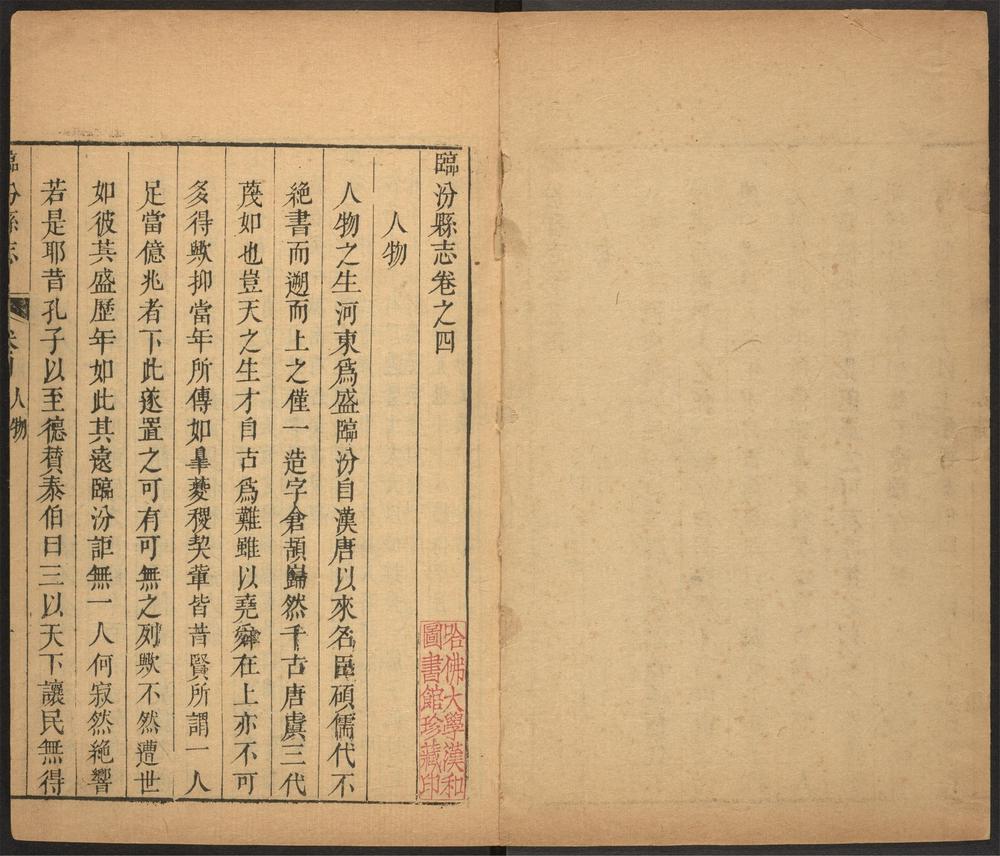 臨汾縣志卷之四
人物
人物之生河東爲盛臨汾自漢唐以來名臣碩儒代不
絶書而遡而上之僅一造字倉頡巋然千古唐虞三代
蔑如也豈天之生才自古爲難雖以堯舜在上亦不可
多得歟抑當年所傳如臯夔稷契軰皆昔賢所謂一人
足當億兆者下此遂置之可有可無之列歟不然遭世
如彼其盛歷年如此其遠臨汾詎無一人何寂然絶響
若是耶昔孔子以至德賛泰伯曰三以天下讓民無得
臨汾縣志
人物
哈佛大學漢和
圖書館珍藏印